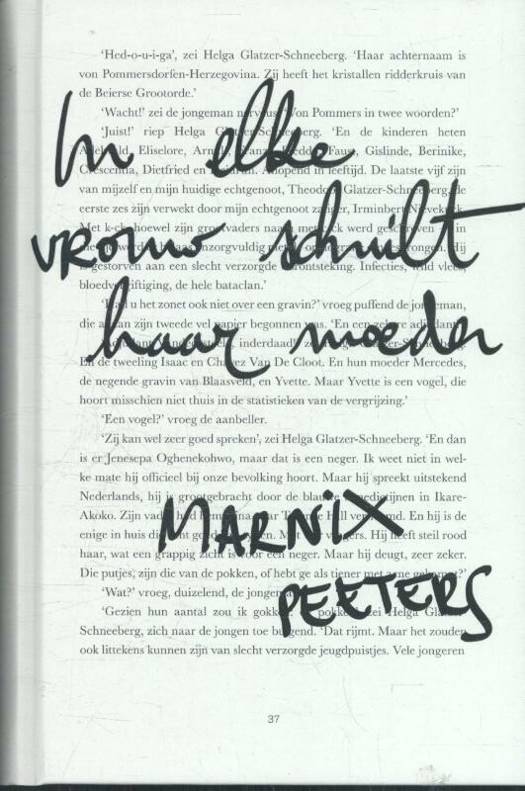 ‘Hed-o-u-i-ga’, zei Helga Glatzer-Schneeberg. ‘Haar achternaam is
von Pommersdorfen-Herzegovina. Zij heeft het kristallen ridderkruis van
de Beierse Grootorde.’
‘Wacht!’ zei de jongeman Von Pommers in twee woorden?’
‘Juist!’ riep Helga ‘En de kinderen heten
In elke
Eliselore, Gislinde, Berinike,
Dietfried en leeftijd. De laatste vijf zijn
van mijzelf en mijn huidige echtgenoot, Glatzer-Schneeberg, de
eerste zes zijn verwekt door mijn echtgenoot
hoewel zijn werd
vrouw schuilt
gestorven aan een slecht verzorgde Infecties,
de hele bataclan.’
u het zonet ook niet over een gravin?’ vroeg puffend de
die zijn tweede papier begonnen
haar moeder
inderdaad!
En de tweeling Isaac en Van De Cloot. En hun moeder Mercedes,
de negende gravin van Blaasveld, en Yvette. Maar Yvette is een vogel, die
hoort misschien niet thuis in de statistieken van de vergrijzing.’
‘Een vogel?’ vroeg de aanbeller.
‘Zij kan wel zeer goed spreken’, zei Helga Glatzer-Schneeberg. ‘En dan
is er Jenesepa Oghenekohwo, maar dat is een neger. Ik weet niet in wel-
ke mate hij officieel bij onze bevolking hoort. Maar hij spreekt uitstekend
Nederlands, hij is grootgebracht door de in Ikare-
Akoko. Zijn En hij is de
Marnix
enige in huis Hij heeft steil rood
haar, wat een grappig zicht is een neger. Maar hij deugt, zeer zeker.
Die putjes, zijn die van de pokken, of hebt ge als tiener met
Peeters
‘Wat?’ vroeg, duizelend, de
‘Gezien hun aantal zou ik zei Helga
Schneeberg, zich naar de jongen toe buigend. ‘Dat rijmt. Maar het zouden
ook littekens kunnen zijn van slecht verzorgde jeugdpuistjes. Vele jongeren
37